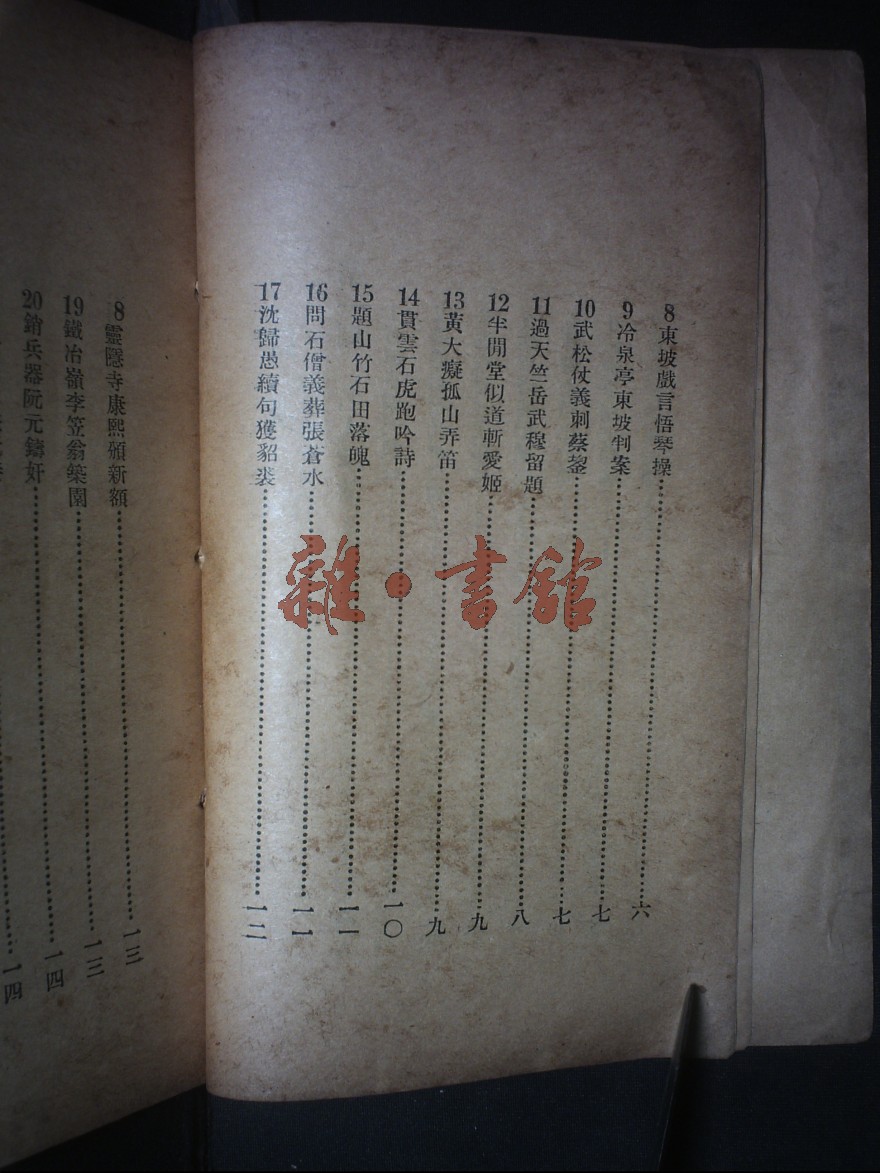 8東坡戲言悟琴操……六
9冷泉亭東坡判案……七
10武松仗義刺蔡鋆……七
11過天竺岳武穆留題……八
12半閒堂似道斬愛姬……九
13黃大癡孤山弄笛……九
14貫雲石虎跑吟詩……一〇
15題山竹石田落魄……一一
16問石僧義葬張蒼水……一一
17沈歸愚續句獲貂裘……一二
8靈隱寺康熙頒新額……一三
19鐵冶嶺李笠翁築園……一三
20銷兵器阮元鑄奸……一四
一四
雜·書館